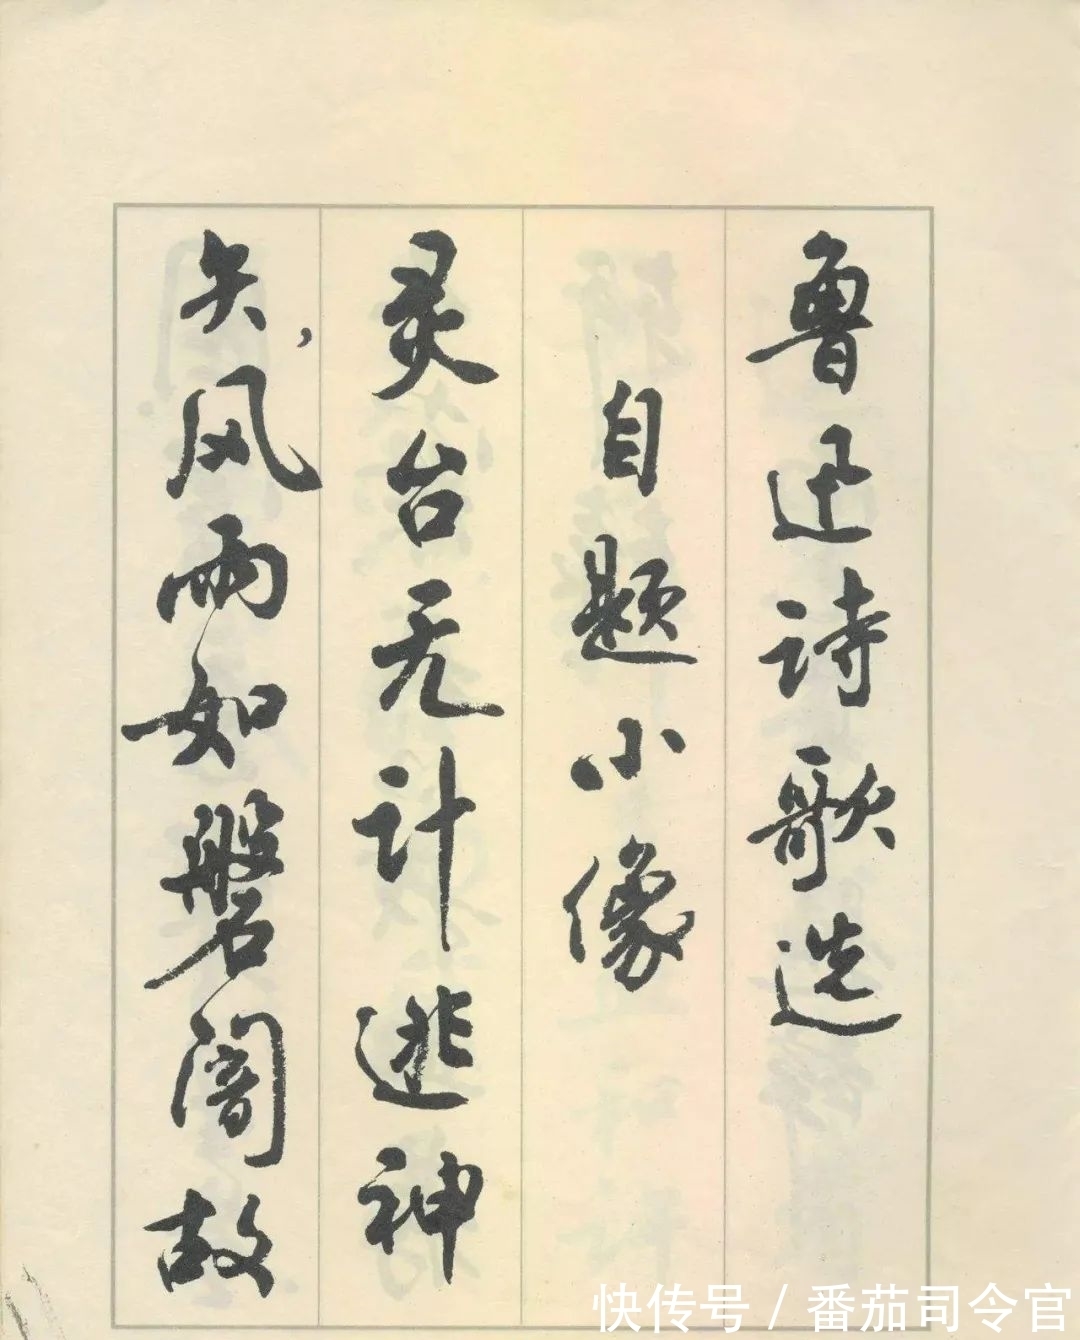 鲁迅诗歌选
自题小像
灵台无计逃神
矢,风雨如磐闇故
快传号 / 番茄司令官